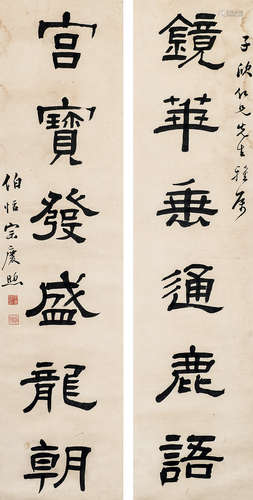 子欣仁兄先生雅屬
鏡華通鹿語
宮寶發盛龍朝
伯恬宗